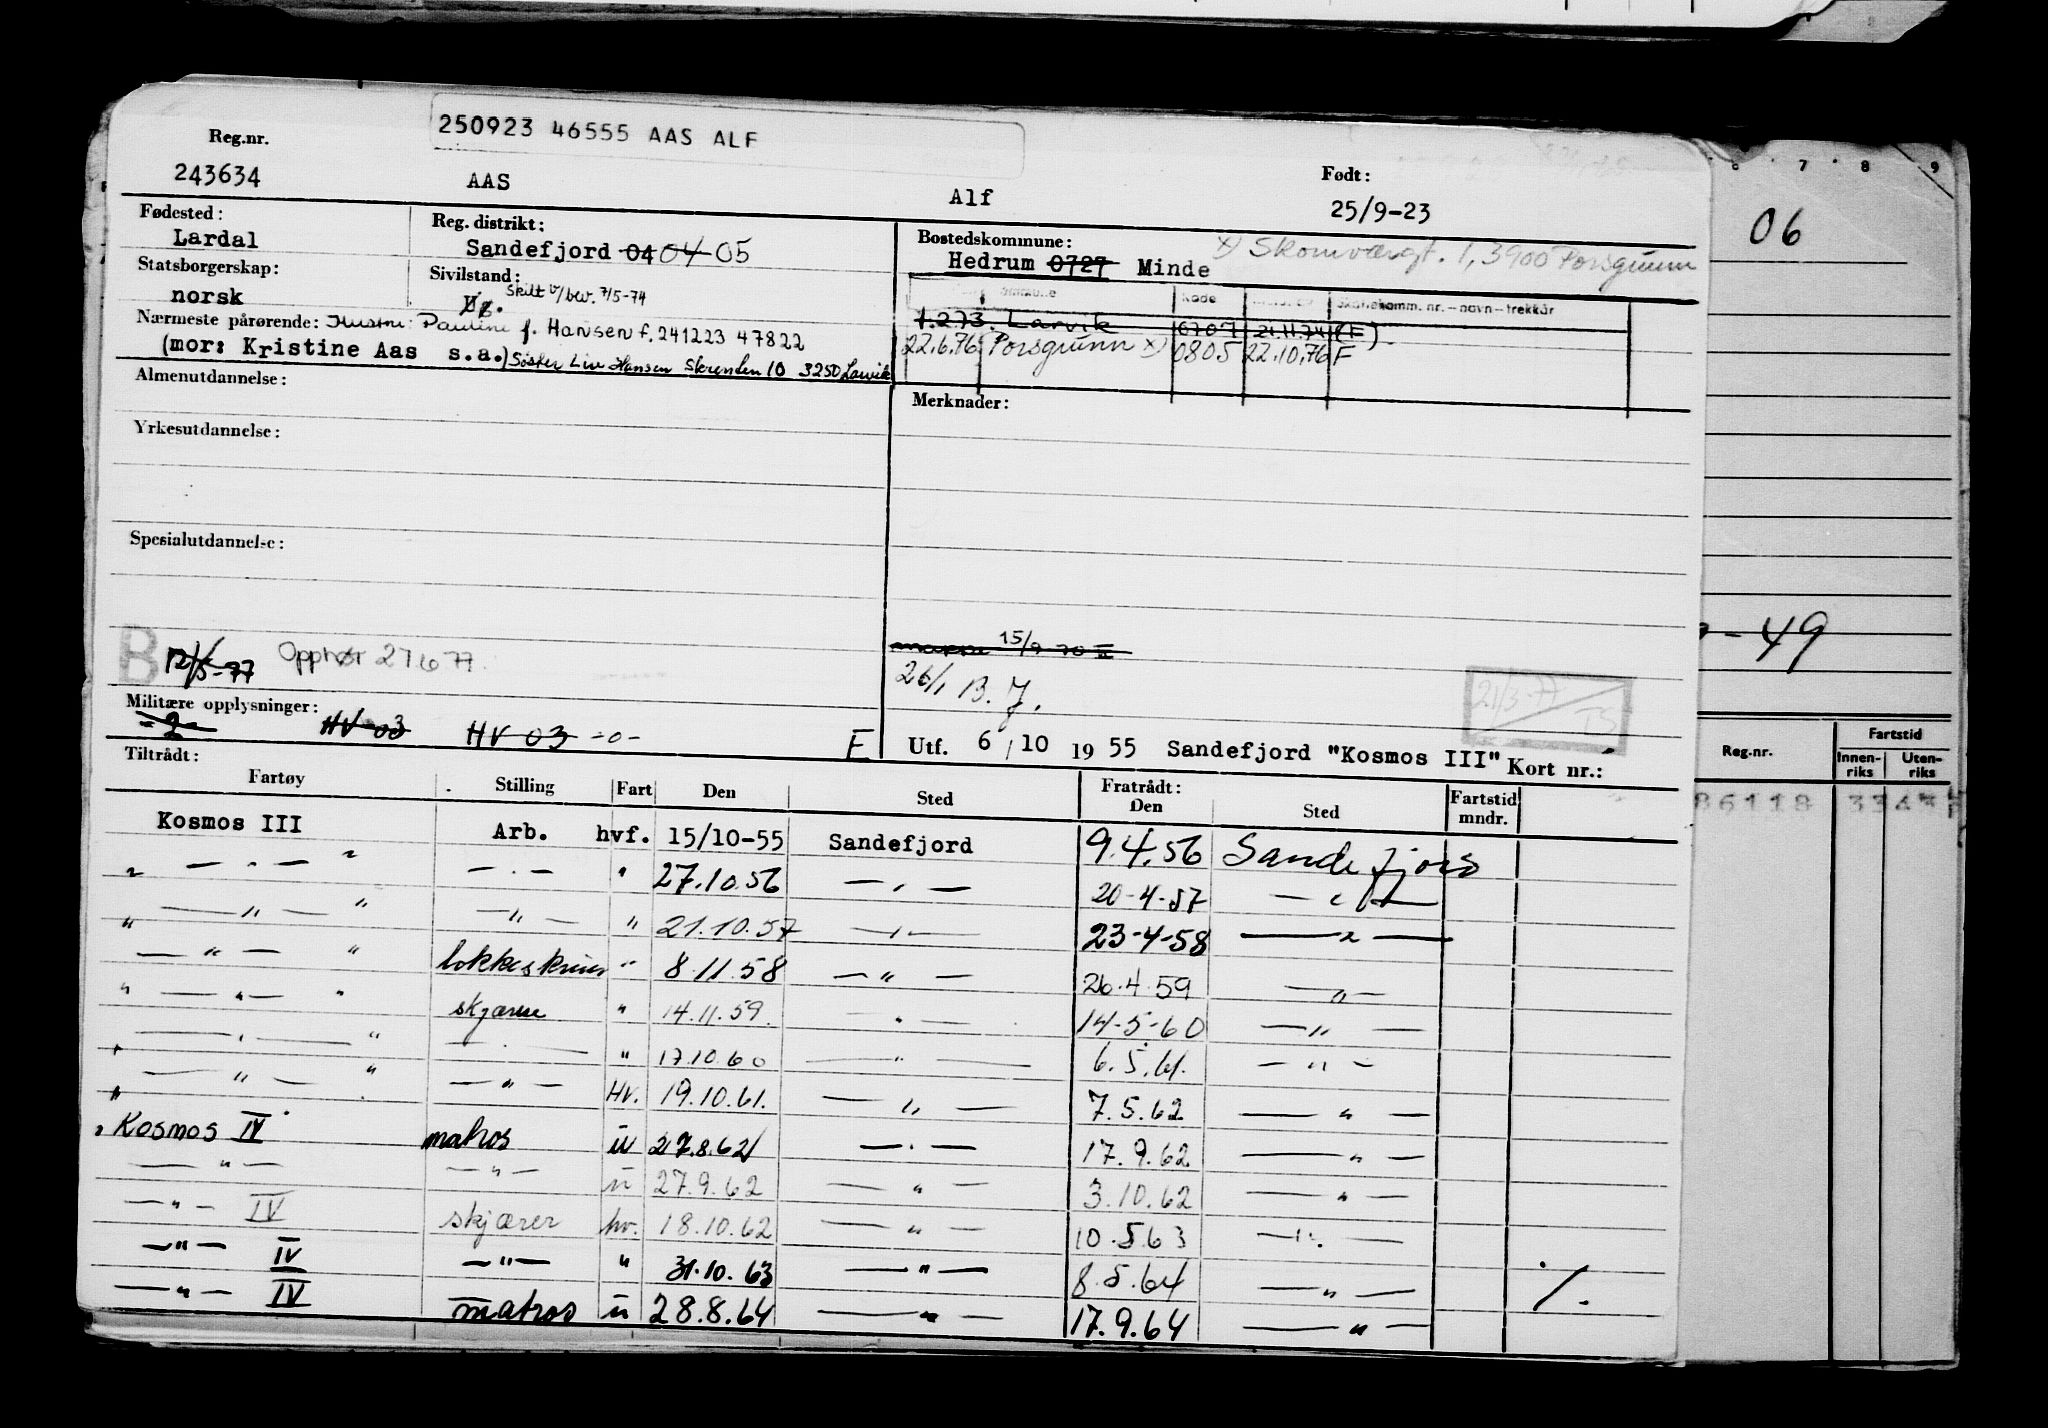 250923 46555 AAS ALF
Reg.nr.
243634 AAS Alf
Født:
25/9-23
Fødested:
Lardal
Reg. distrikt:
Sandefjord 04 04 05
Bostedskommune:
Hedrum 0727 Minde
x) Skomværgt. 1, 3900 Porsgrunn
Statsborgerskap:
norsk
Sivilstand:
Skilt v/bev. 7/5-74
Kode Skattekomm. nr. – navn – trekkår
1.273. Larvik 0707 21.11.74 (F)
22.6.76 Porsgrunn x) 0805 22.10.76 F
Nærmeste pårørende: Hustru: Pauline f. Hansen f. 241223 47822
(mor: Kristine Aas s.a.) Søster Liv Hansen Skrenten 10 3250 Larvik
Almenutdannelse:
Merknader:
Yrkesutdannelse:
Spesialutdannelse:
15/9 70
B 12/5-77 Opphør 27.6 77.
26/1 B. J.
21/3-77
TS
Militære opplysninger:
-2- HV 03 HV 03 -o- F
Utf. 6/10 1955 Sandefjord "Kosmos III" Kort nr.:
Tiltrådt:
Fartøy Stilling Fart Den Sted Fratrådt: Den Sted Fartstid mndr.
Kosmos III Arb. hvf. 15/10-55 Sandefjord 9.4.56 Sandefjord
" — " — " — " — " 27.10.56 — " — 20-4-57 — " —
" — " — " — " — " 21.10.57 — " — 23-4-58 — " —
" — " — " " 8.11.58 — " — 26.4.59 — " —
" — " — " skjærer " 14.11.59. — " — 14-5-60 — " —
— " — " — " — " 17.10.60 — " — 6.5.61. — " —
" — " — " — " — Hv. 19.10.61. — " — 7.5.62 — " —
" Kosmos IV matros u 27.8.62 — " — 17.9.62 — " —
— " — — " — u 27.9.62 — " — 3.10.62 — " —
— " — IV skjærer hv. 18.10.62 — " — 10.5.63 — " —
— " — IV — " — " 31.10.63 — " — 8.5.64 — " — ./.
— " — IV matros u 28.8.64 — " — 17.9.64 — " —
6 7 8 9
06
- 49
Reg.nr. Fartstid
Innen-riks Uten-riks
86118